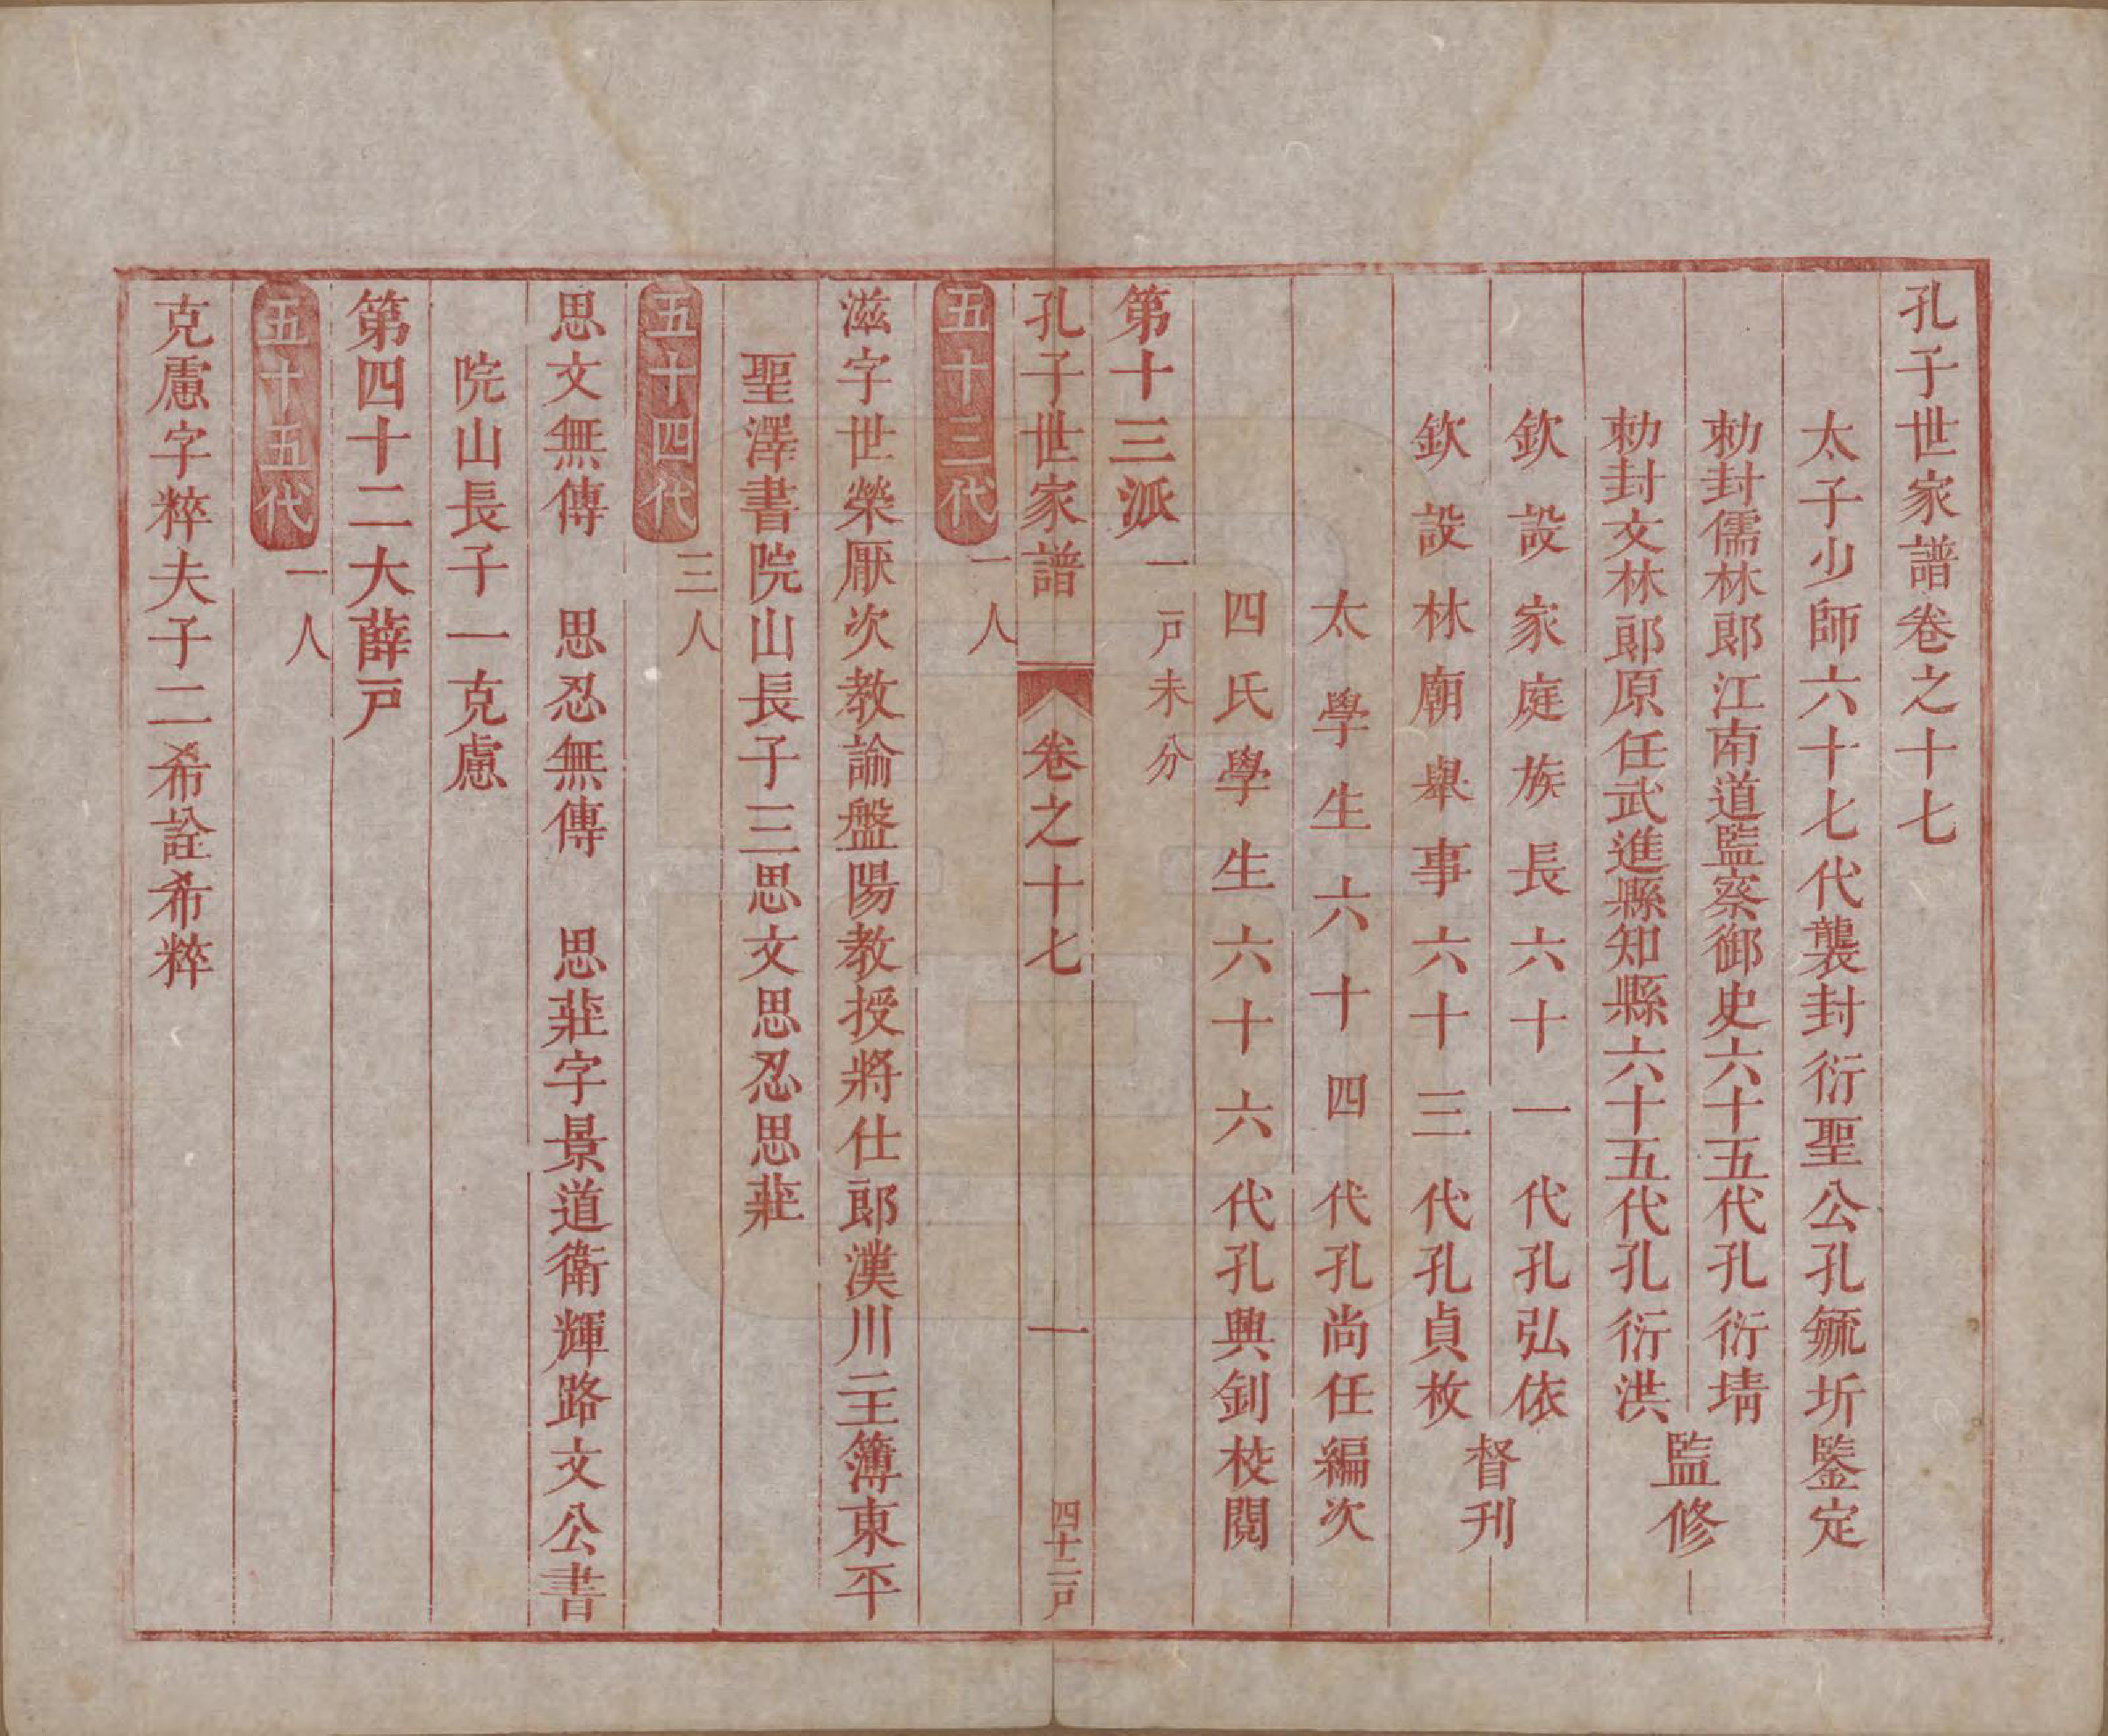 孔子世家譜卷之十七
太子少師六十七代襲封衍聖公孔毓圻鑒定
勅封儒林郎江南道監察御史六十五代孔衍𡋣
勅封文林郎原任武進縣知縣六十五代孔衍洪
監修
欽設家庭族長六十一代孔弘依
欽設林廟舉事六十三代孔貞枚
督刊
太學生六十四代孔尚任編次
四氏學生六十六代孔興釗校閱
第十三派 一戶未分
孔子世家譜 卷之十七 一 四十二戶
五十三代 一人
滋字世榮厭次教諭盤陽教授將仕郎漢川主簿東平
聖澤書院山長子三思文思忍思莊
五十四代 三人
思文無傳 思忍無傳 思莊字景道衛輝路文公書
院山長子一克慮
第四十二大薛戶
五十五代 一人
克慮字粹夫子二希詮希粹